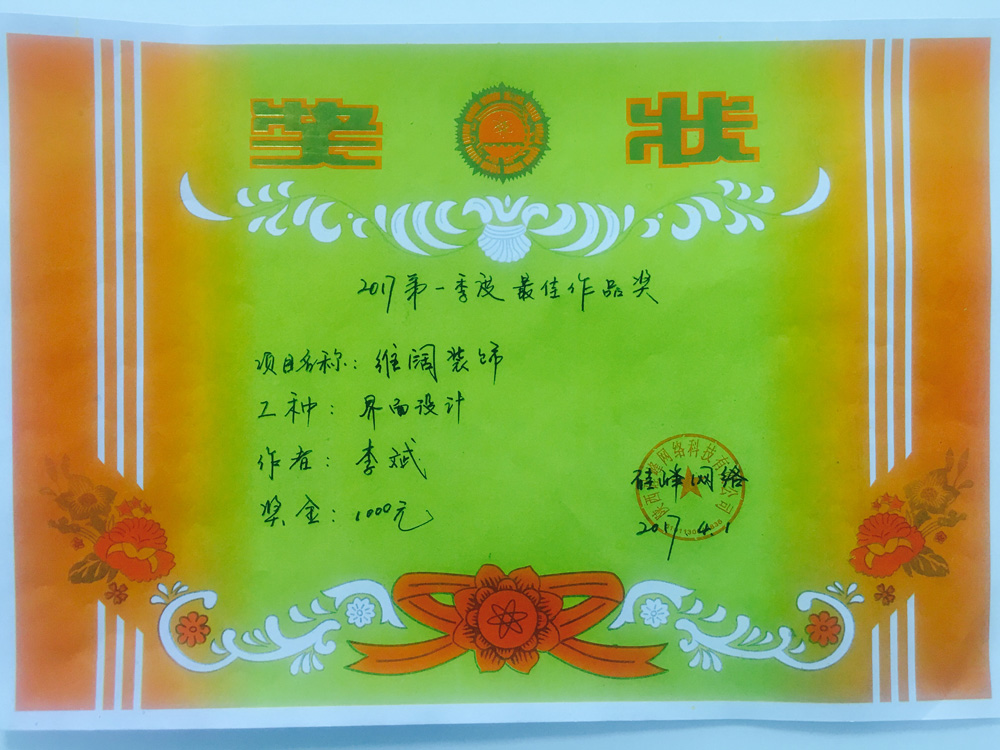 奖状
2017第一季度最佳作品奖
项目名称：维阔装饰
工种：界面设计
作者：李斌
奖金：1000元
硅峰网络
2017.4.1